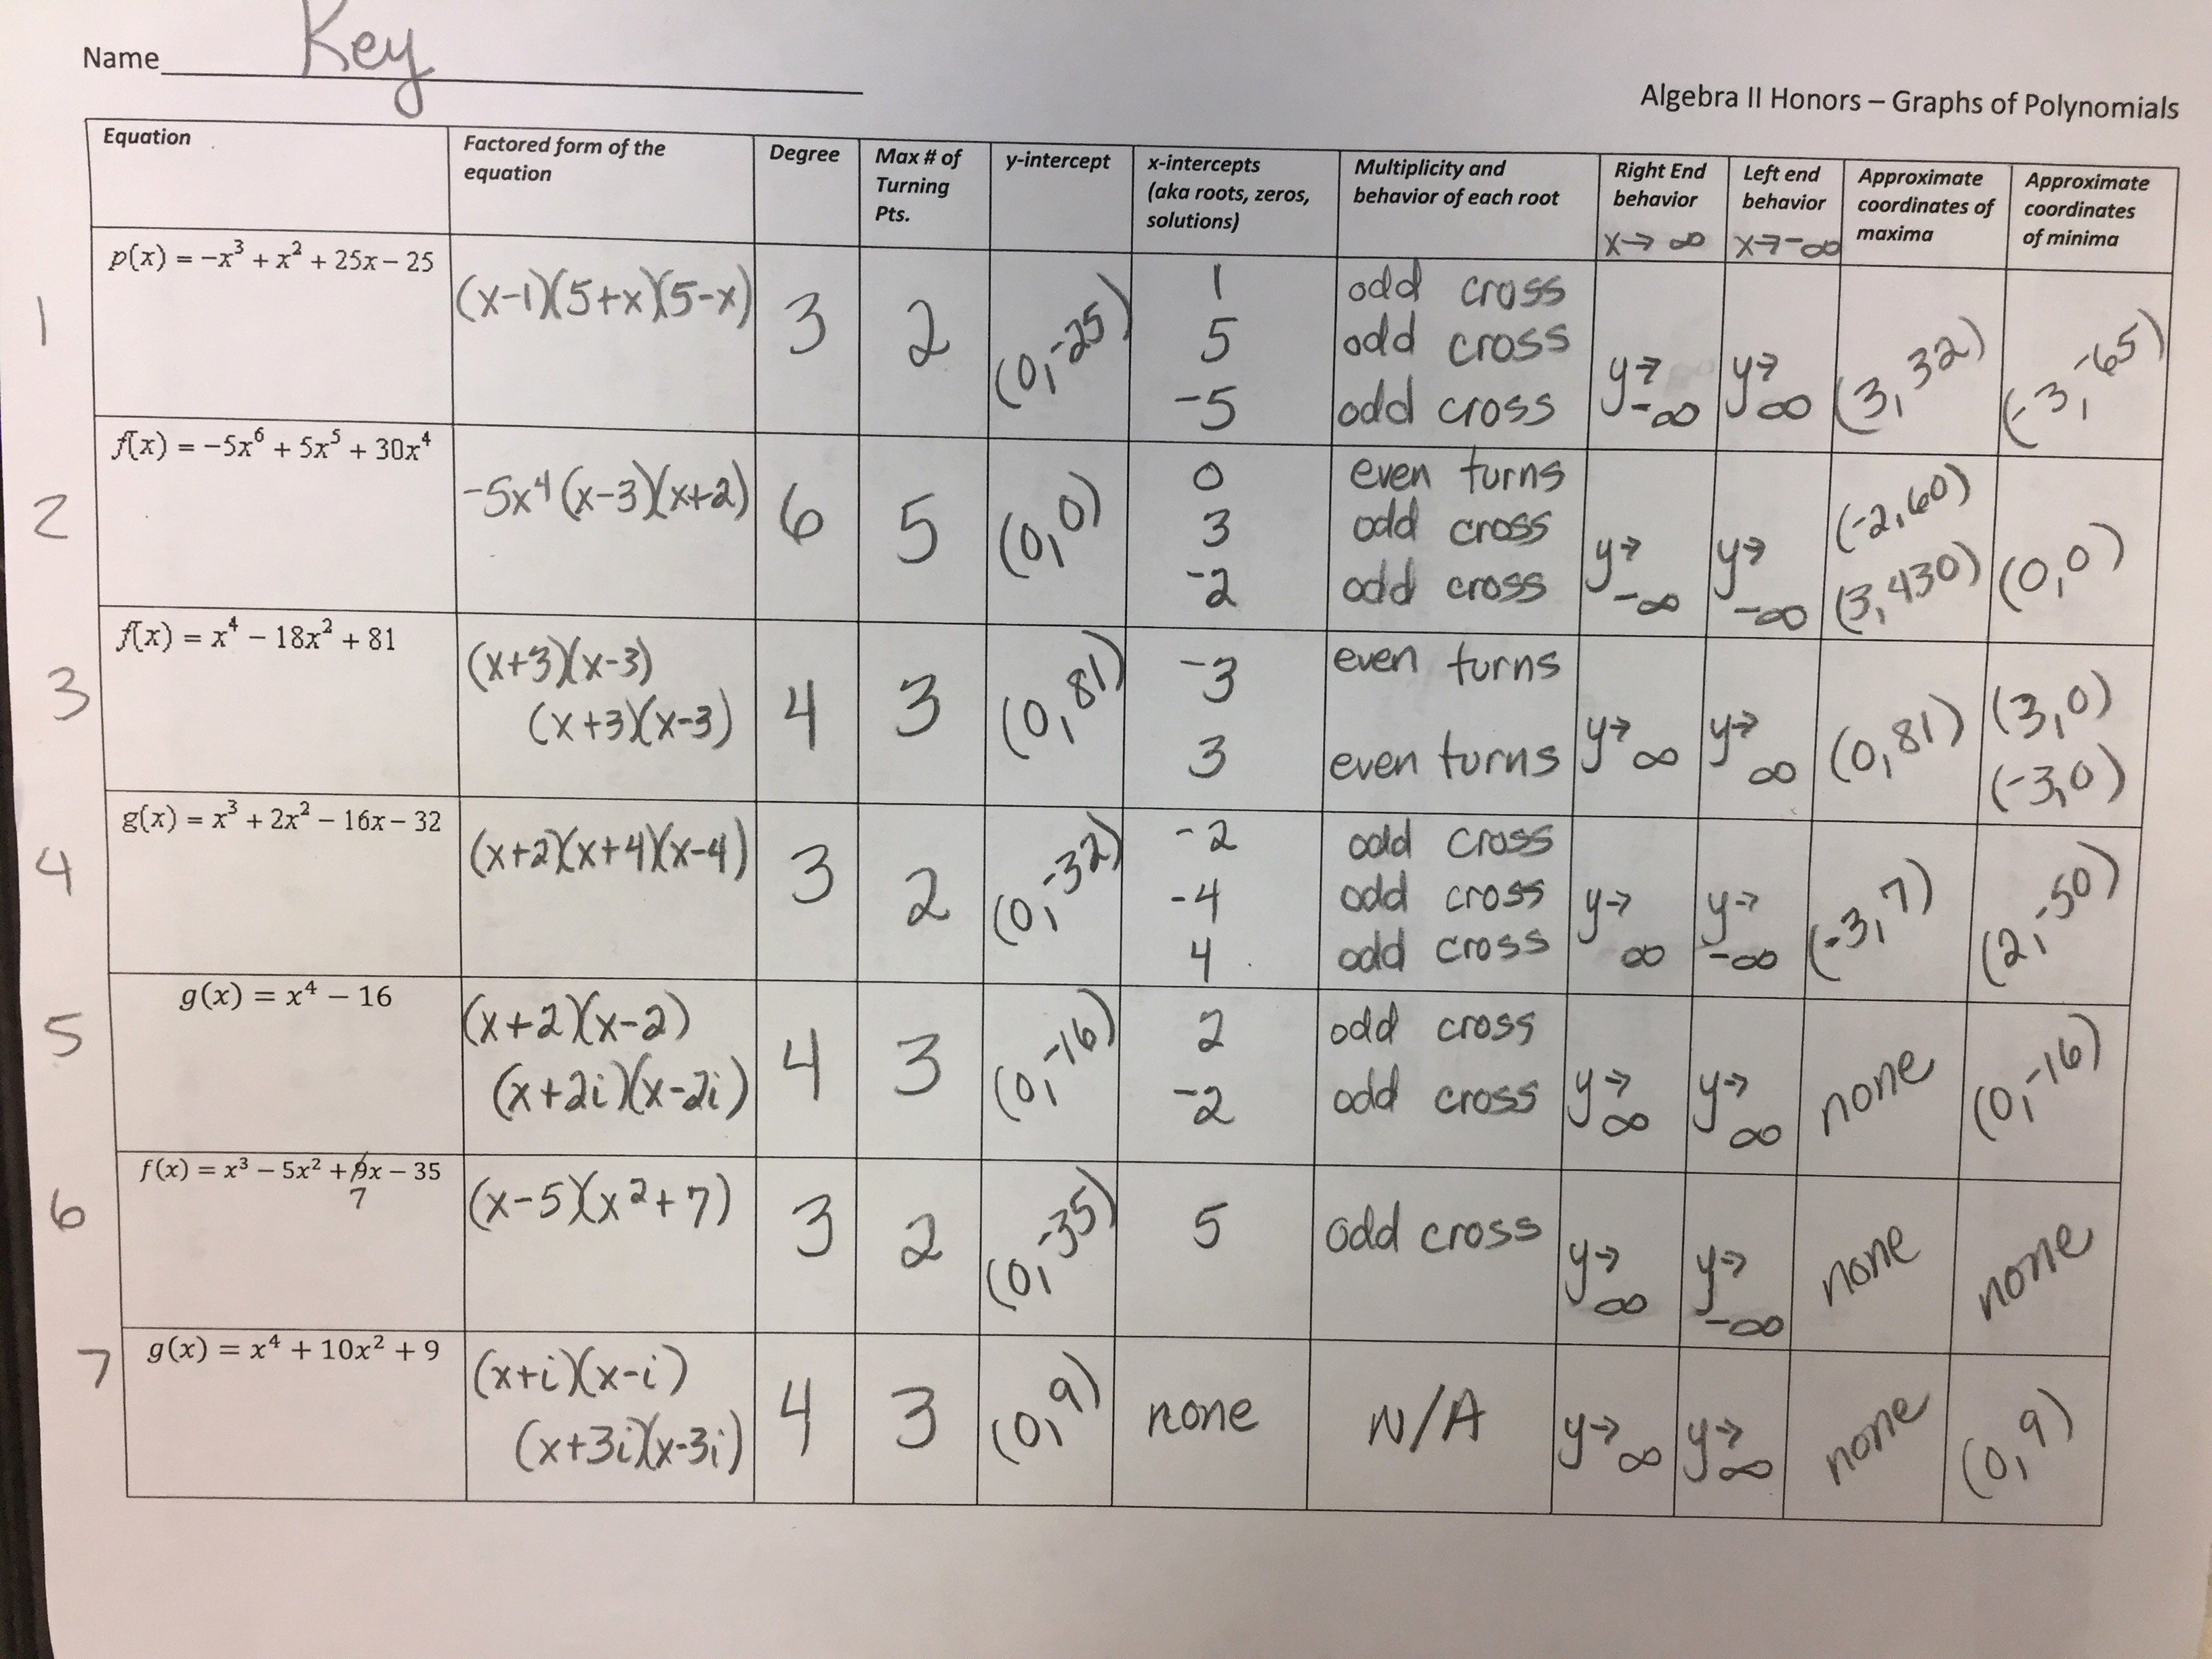 Name Key
Algebra II Honors – Graphs of Polynomials
Equation
Factored form of the
equation
Degree
Max # of
Turning
Pts.
y-intercept
x-intercepts
(aka roots, zeros,
solutions)
Multiplicity and
behavior of each root
Right End
behavior
x→ ∞
Left end
behavior
x→-∞
Approximate
coordinates of
maxima
Approximate
coordinates
of minima
1
p(x) = −x³ + x² + 25x − 25
(x-1)(5+x)(5-x)
3
2
(0,-25)
1
5
-5
odd cross
odd cross
odd cross
y→
-∞
y→
∞
(3,32)
(-3,-65)
2
f(x) = −5x⁶ + 5x⁵ + 30x⁴
-5x⁴(x-3)(x+2)
6
5
(0,0)
0
3
-2
even turns
odd cross
odd cross
y→
-∞
y→
-∞
(-2,60)
(3,430)
(0,0)
3
f(x) = x⁴ − 18x² + 81
(x+3)(x-3)
(x+3)(x-3)
4
3
(0,81)
-3
3
even turns
even turns
y→
∞
y→
∞
(0,81)
(3,0)
(-3,0)
4
g(x) = x³ + 2x² − 16x − 32
(x+2)(x+4)(x-4)
3
2
(0,-32)
-2
-4
4
odd cross
odd cross
odd cross
y→
∞
y→
-∞
(-3,7)
(2,-50)
5
g(x) = x⁴ − 16
(x+2)(x-2)
(x+2i)(x-2i)
4
3
(0,-16)
2
-2
odd cross
odd cross
y→
∞
y→
∞
none
(0,-16)
6
f(x) = x³ − 5x² + 9x − 35
7
(x-5)(x²+7)
3
2
(0,-35)
5
odd cross
y→
∞
y→
-∞
none
none
7
g(x) = x⁴ + 10x² + 9
(x+i)(x-i)
(x+3i)(x-3i)
4
3
(0,9)
none
N/A
y→
∞
y→
∞
none
(0,9)